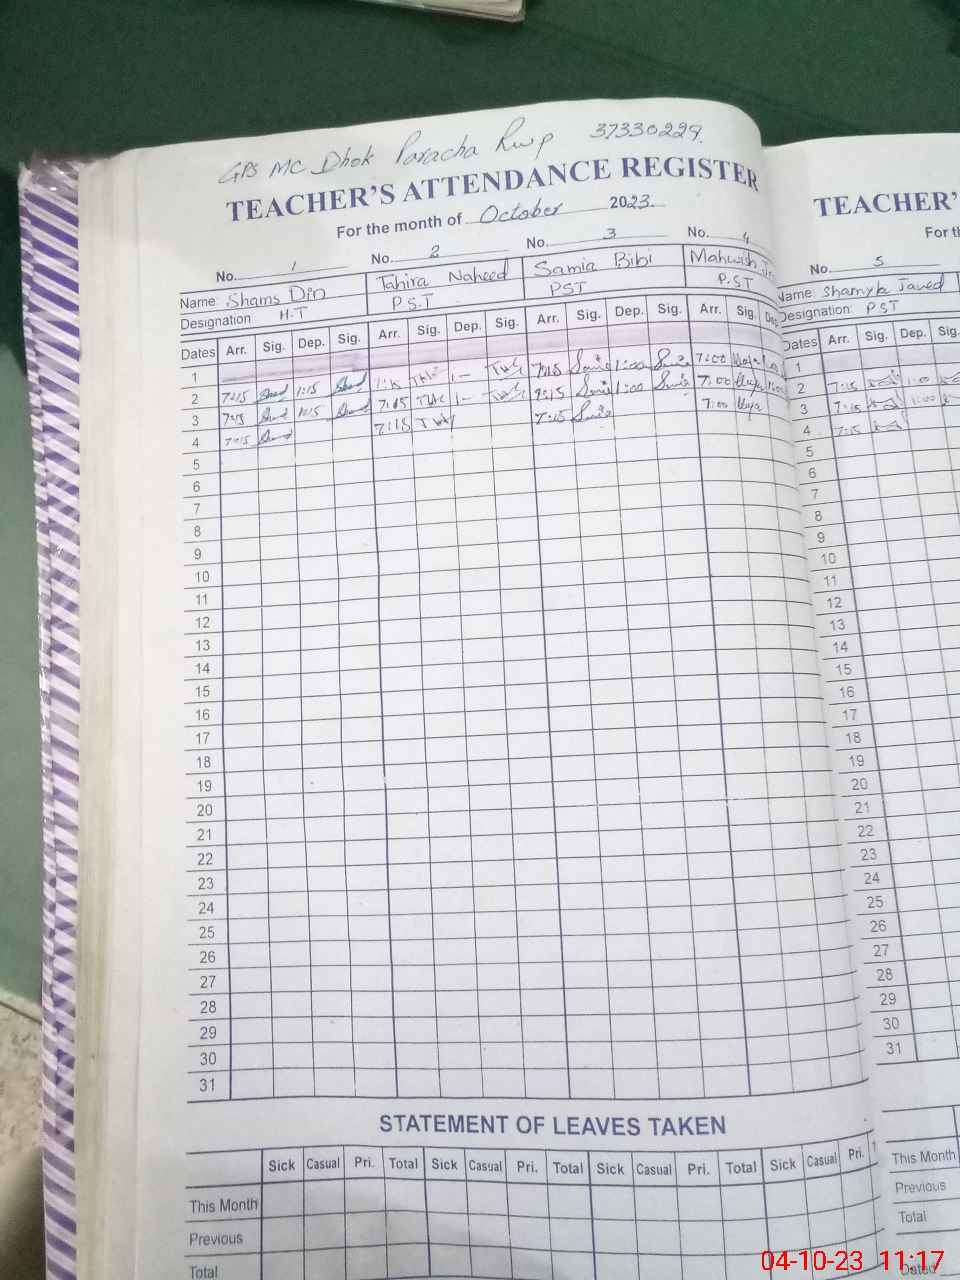 GPS MC Dhok Paracha Rwp 37330229.
TEACHER'S ATTENDANCE REGISTER
For the month of October 2023
No. 1 No. 2 No. 3 No. 4
Name: Shams Din Tahira Naheed Samia Bibi Mahwish
Designation H.T P.S.T PST P.ST
Dates Arr. Sig. Dep. Sig. Arr. Sig. Dep. Sig. Arr. Sig. Dep. Sig. Arr. Sig. Dep
1
2 7:15 1:15 1- 7:15 1:00 7:00
3 7:15 7:15 1- 7:15 1:00 7:00
4 7:15 7:15 7:15 7:00
5
6
7
8
9
10
11
12
13
14
15
16
17
18
19
20
21
22
23
24
25
26
27
28
29
30
31
STATEMENT OF LEAVES TAKEN
Sick Casual Pri. Total Sick Casual Pri. Total Sick Casual Pri. Total Sick Casual Pri.
This Month
Previous
Total
TEACHER'
For th
No. 5
Name: Shamyla Javed
Designation: PST
Dates Arr. Sig. Dep. Sig.
1
2 7:15 1:00
3 7:15 1:00
4 7:15
5
6
7
8
9
10
11
12
13
14
15
16
17
18
19
20
21
22
23
24
25
26
27
28
29
30
31
This Month
Previous
Total
Dated
04-10-23 11:17